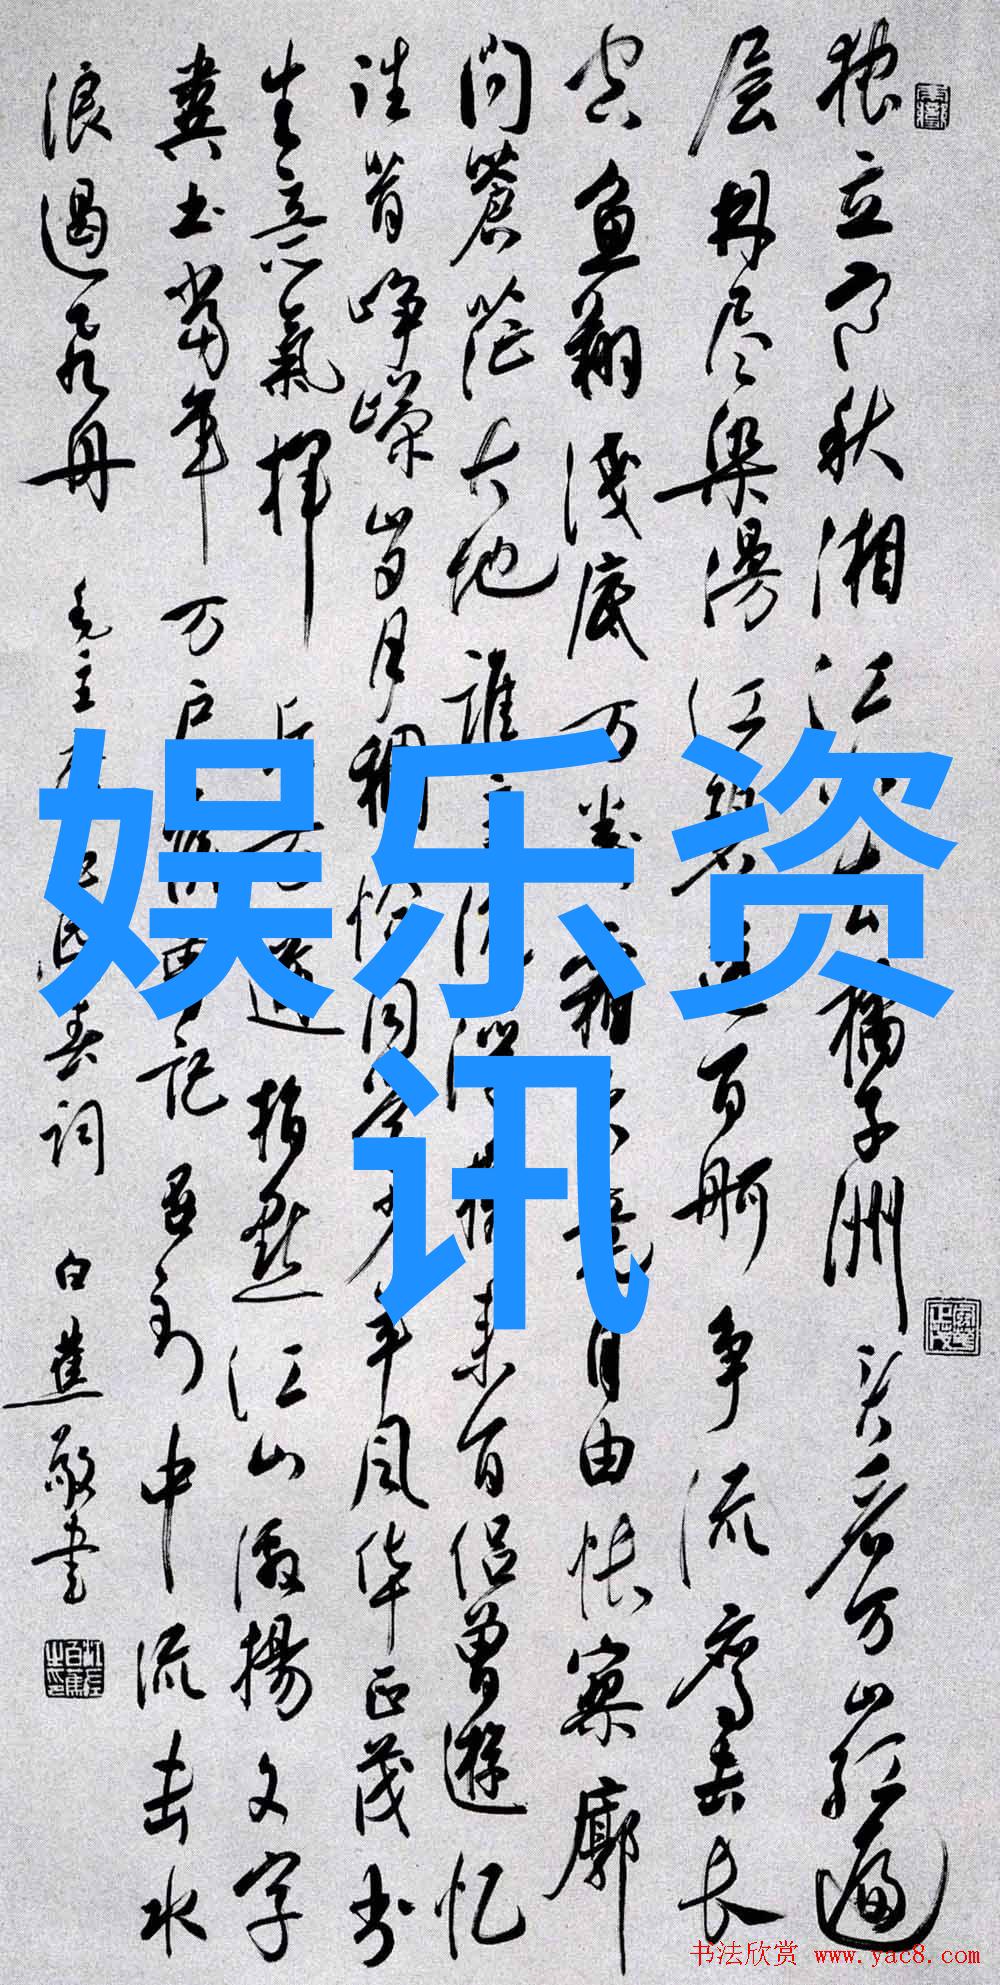 独立寒秋湘江北去橘子洲头看万山红遍
层林尽染漫江碧透百舸争流鹰击长
空鱼翔浅底万类霜天竞自由怅寥廓
问蒼茫大地誰主沉浮携来百侣曾遊忆
往昔峥嵘岁月稠恰同学少年风华正茂书
生意氣挥斥方遒指點江山激揚文字
粪土当年万户侯曾记否到中流击水
浪遏飞舟 毛主席沁园春词 白蕉敬书
娱乐资
讯
书法欣赏 www.yac8.com